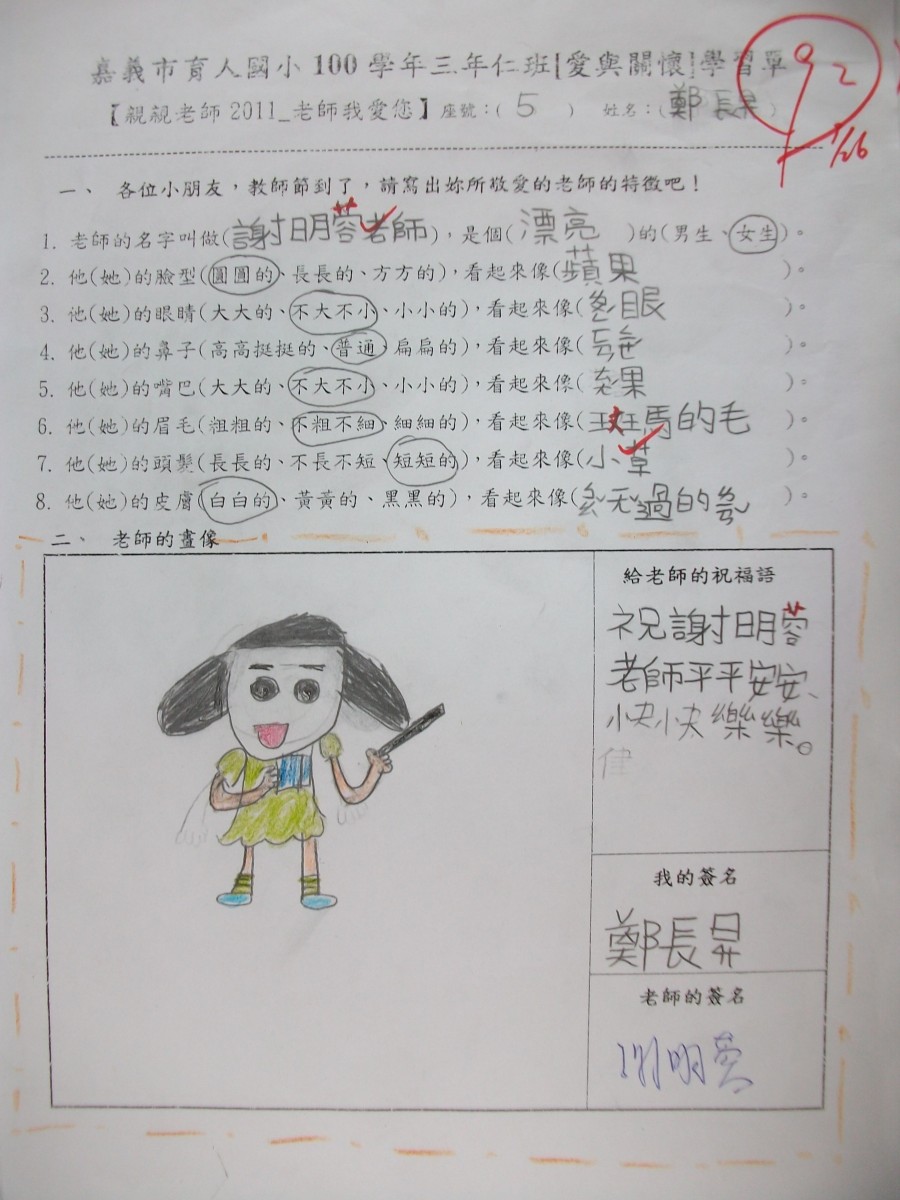 嘉義市育人國小100學年三年仁班[愛與關懷]學習單
92
【親親老師2011_老師我愛您】座號:( 5 ) 姓名:(鄭長昇)
1/26
一、 各位小朋友,教師節到了,請寫出妳所敬愛的老師的特徵吧!
1. 老師的名字叫做(謝明蓉老師),是個(漂亮)的(男生、女生)。
2. 他(她)的臉型(圓圓的、長長的、方方的),看起來像(蘋果)。
3. 他(她)的眼睛(大大的、不大不小、小小的),看起來像(眼)。
4. 他(她)的鼻子(高高挺挺的、普通、扁扁的),看起來像( )。
5. 他(她)的嘴巴(大大的、不大不小、小小的),看起來像(果)。
6. 他(她)的眉毛(粗粗的、不粗不細、細細的),看起來像(斑馬的毛)。
7. 他(她)的頭髮(長長的、不長不短、短短的),看起來像(小草)。
8. 他(她)的皮膚(白白的、黃黃的、黑黑的),看起來像(過的)。
二、 老師的畫像
給老師的祝福語
祝謝明蓉
老師平平安安、
快快樂樂。
健
我的簽名
鄭長昇
老師的簽名
謝明蓉